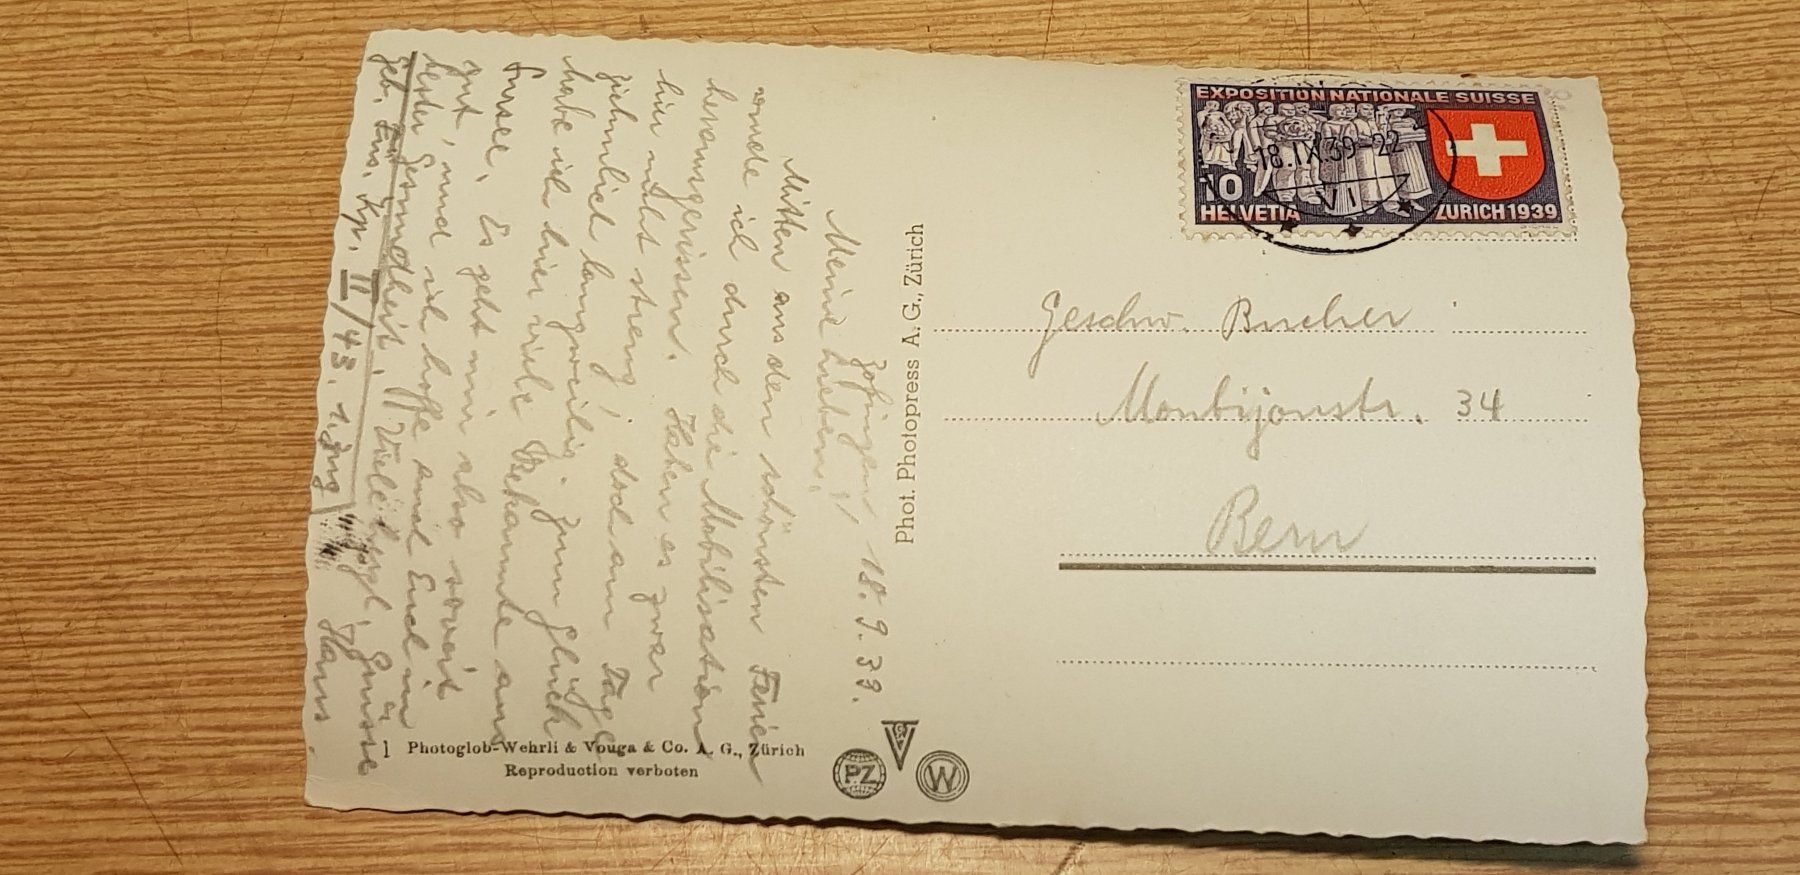 Zofingen, 18. 9. 39.
Meine Lieben!
Mitten aus den schönsten Ferien
wurde ich durch die Mobilisation
herausgerissen. Haben es zwar
hier nicht streng, doch am Tage
ziemlich langweilig. Zum Glück
habe ich hier viele Bekannte aus
Es geht mir also soweit
gut, und ich hoffe auch Euch in
bester Gesundheit. Viele herzl. Grüsse
Hans.
Kp. II/43. 1. Zug
EXPOSITION NATIONALE SUISSE
18.IX.39-22
VI
10
HELVETIA
ZÜRICH 1939
Geschw. Bucher
Monbijoustr. 34
Bern
Phot. Photopress A. G., Zürich
1 Photoglob-Wehrli & Vouga & Co. A. G., Zürich
Reproduction verboten
PZ
W